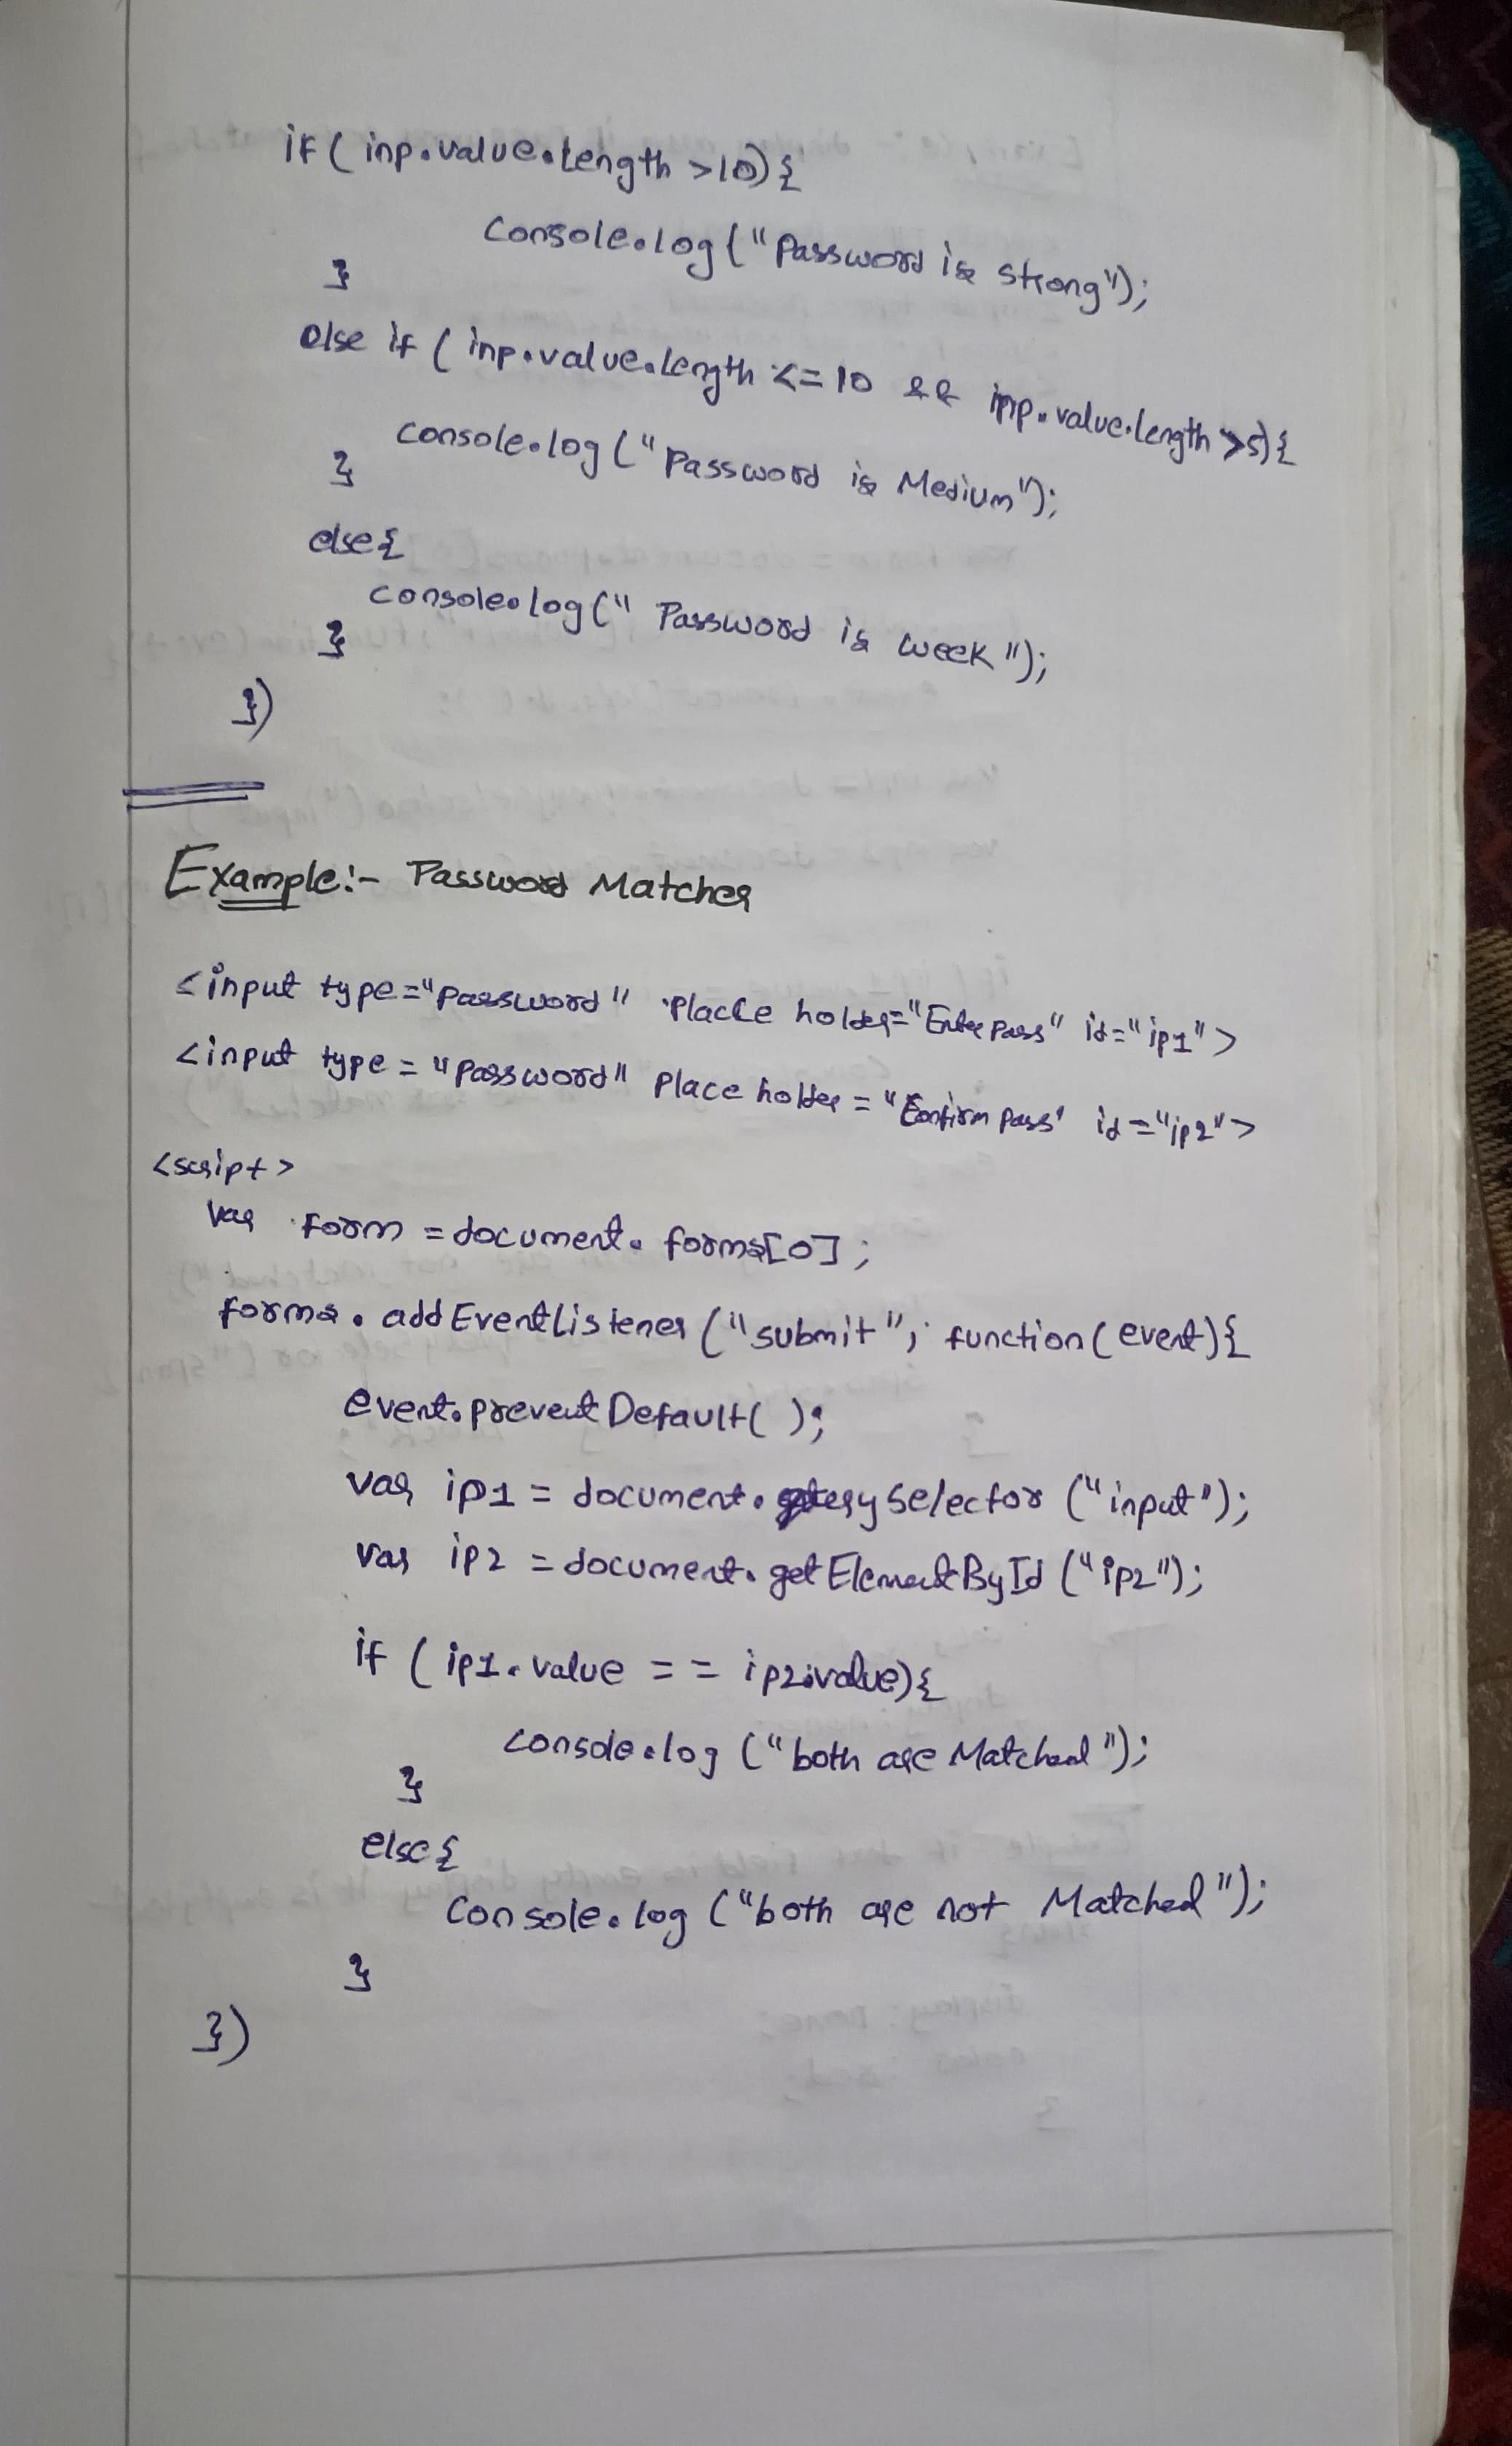 if ( inp.value.length >10) {
Console.log ( "Password is strong");
}
else if ( inp.value.length <= 10 && inp.value.length >5) {
console.log ( "Password is Medium");
}
else {
console.log ( " Password is week ");
}
})
Example:- Password Matcher
<input type="password" Place holder="Enter pass" id="ip1">
<input type = "password" Place holder = "Confirm pass" id ="ip2">
<script>
var form = document. forms[0] ;
forms. addEventListener ( "submit", function (event) {
event.preventDefault( );
var ip1 = document. querySelector ("input");
var ip2 = document. getElementById ("ip2");
if ( ip1. value == ip2.value) {
console.log ("both are Matched");
}
else {
Console. log ("both are not Matched ");
}
})